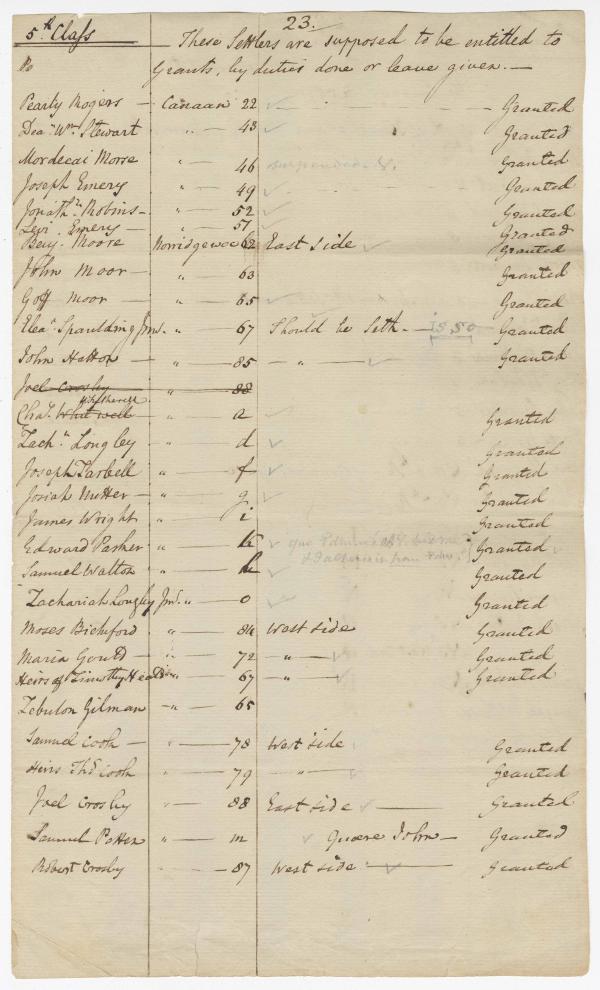 23.
5th Class These Settlers are supposed to be entitled to
No Grants, by duties done or leave given. —
Pearly Rogers — Canaan 22 Granted
Deaⁿ Wm Stewart " — 43 Granted
Mordecai Morse " — 46 suspended Granted
Joseph Emery " — 49 Granted
Jonathⁿ Robins — " — 52 Granted
Levi Emery — " — 57 Granted
Benj. Moore Norridgewock 62 East side Granted
John Moor — " — 63 Granted
Goff Moor — " — 65 Granted
Eleaʳ Spaulding Junr. " — 67 Should be Seth — is so Granted
John Hatton — " — 85 — " — Granted
Joel Crosby " — 88
Chas. Whitwell " — a Granted
Zachʰ Longley " — d Granted
Joseph Tarbell " — f Granted
Josiah Nutter — " — g Granted
James Wright " — i Granted
Edward Parker " — k Granted
Samuel Watton " — Granted
Zachariah Longley Junr. " — o Granted
Moses Bickford " — 84 West side Granted
Maria Gould — " — 72 — " — Granted
Heirs of Timothy Heald " — 67 — " — Granted
Zebulon Gilman " — 65
Samuel Cook — " — 78 West side Granted
Heirs Thos Cook " — 79 — " — Granted
Joel Crosby " — 88 East side — Granted
Samuel Patten " — m Quaere John — Granted
Robert Crosby " — 87 West side — Granted